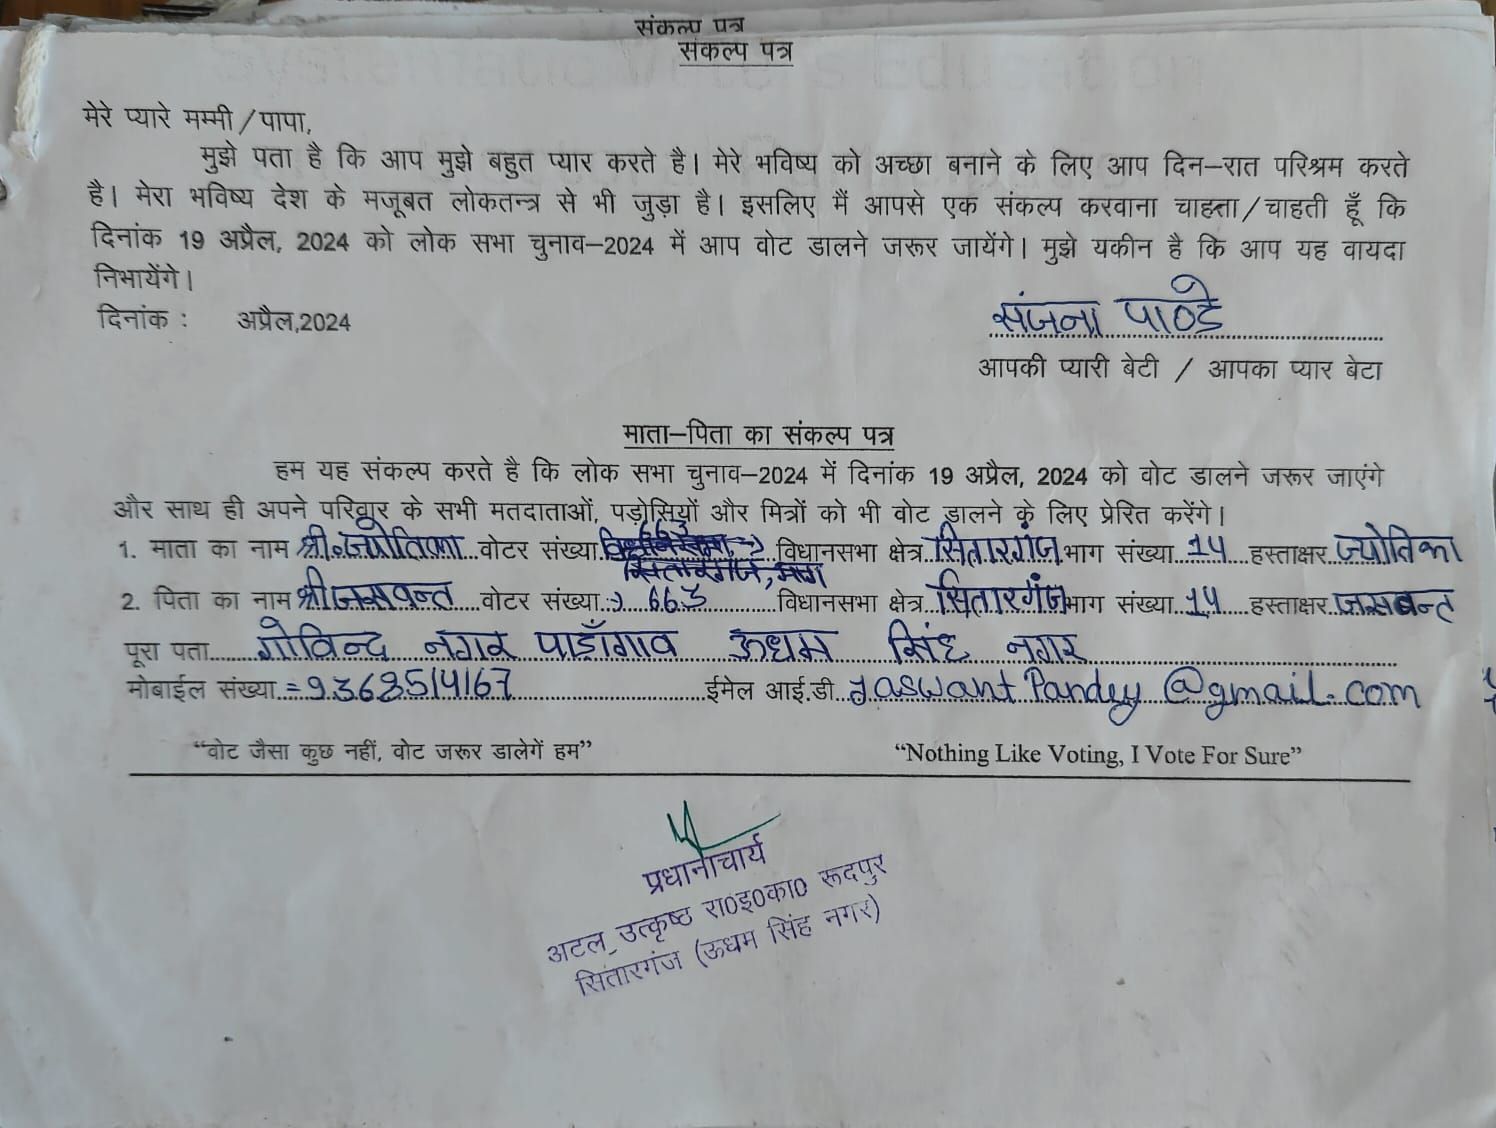 संकल्प पत्र
संकल्प पत्र
मेरे प्यारे मम्मी/पापा,
मुझे पता है कि आप मुझे बहुत प्यार करते है। मेरे भविष्य को अच्छा बनाने के लिए आप दिन–रात परिश्रम करते
है। मेरा भविष्य देश के मजूबत लोकतन्त्र से भी जुड़ा है। इसलिए मैं आपसे एक संकल्प करवाना चाहता/चाहती हूँ कि
दिनांक 19 अप्रैल, 2024 को लोक सभा चुनाव–2024 में आप वोट डालने जरूर जायेंगे। मुझे यकीन है कि आप यह वायदा
निभायेंगे।
दिनांक : अप्रैल,2024
संजना पाण्डे
आपकी प्यारी बेटी / आपका प्यार बेटा
माता–पिता का संकल्प पत्र
हम यह संकल्प करते है कि लोक सभा चुनाव–2024 में दिनांक 19 अप्रैल, 2024 को वोट डालने जरूर जाएंगे
और साथ ही अपने परिवार के सभी मतदाताओं, पड़ोसियों और मित्रों को भी वोट डालने के लिए प्रेरित करेंगे।
663
1. माता का नाम श्री.ज्योतिका वोटर संख्या विधानसभा क्षेत्र सितारगंज भाग संख्या 14 हस्ताक्षर ज्योतिका
सितारगंज, भाग
2. पिता का नाम श्री जसवन्त वोटर संख्या 663 विधानसभा क्षेत्र सितारगंज भाग संख्या 14 हस्ताक्षर जसवन्त
पूरा पता गोविन्द नगर पाडाँगाव ऊधम सिंह नगर
मोबाईल संख्या = 9368514167 ईमेल आई.डी. JaswantPandey@gmail.com
“वोट जैसा कुछ नहीं, वोट जरूर डालेगें हम” “Nothing Like Voting, I Vote For Sure”
प्रधानाचार्य
अटल उत्कृष्ठ रा0इ0का0 रूदपुर
सितारगंज (ऊधम सिंह नगर)